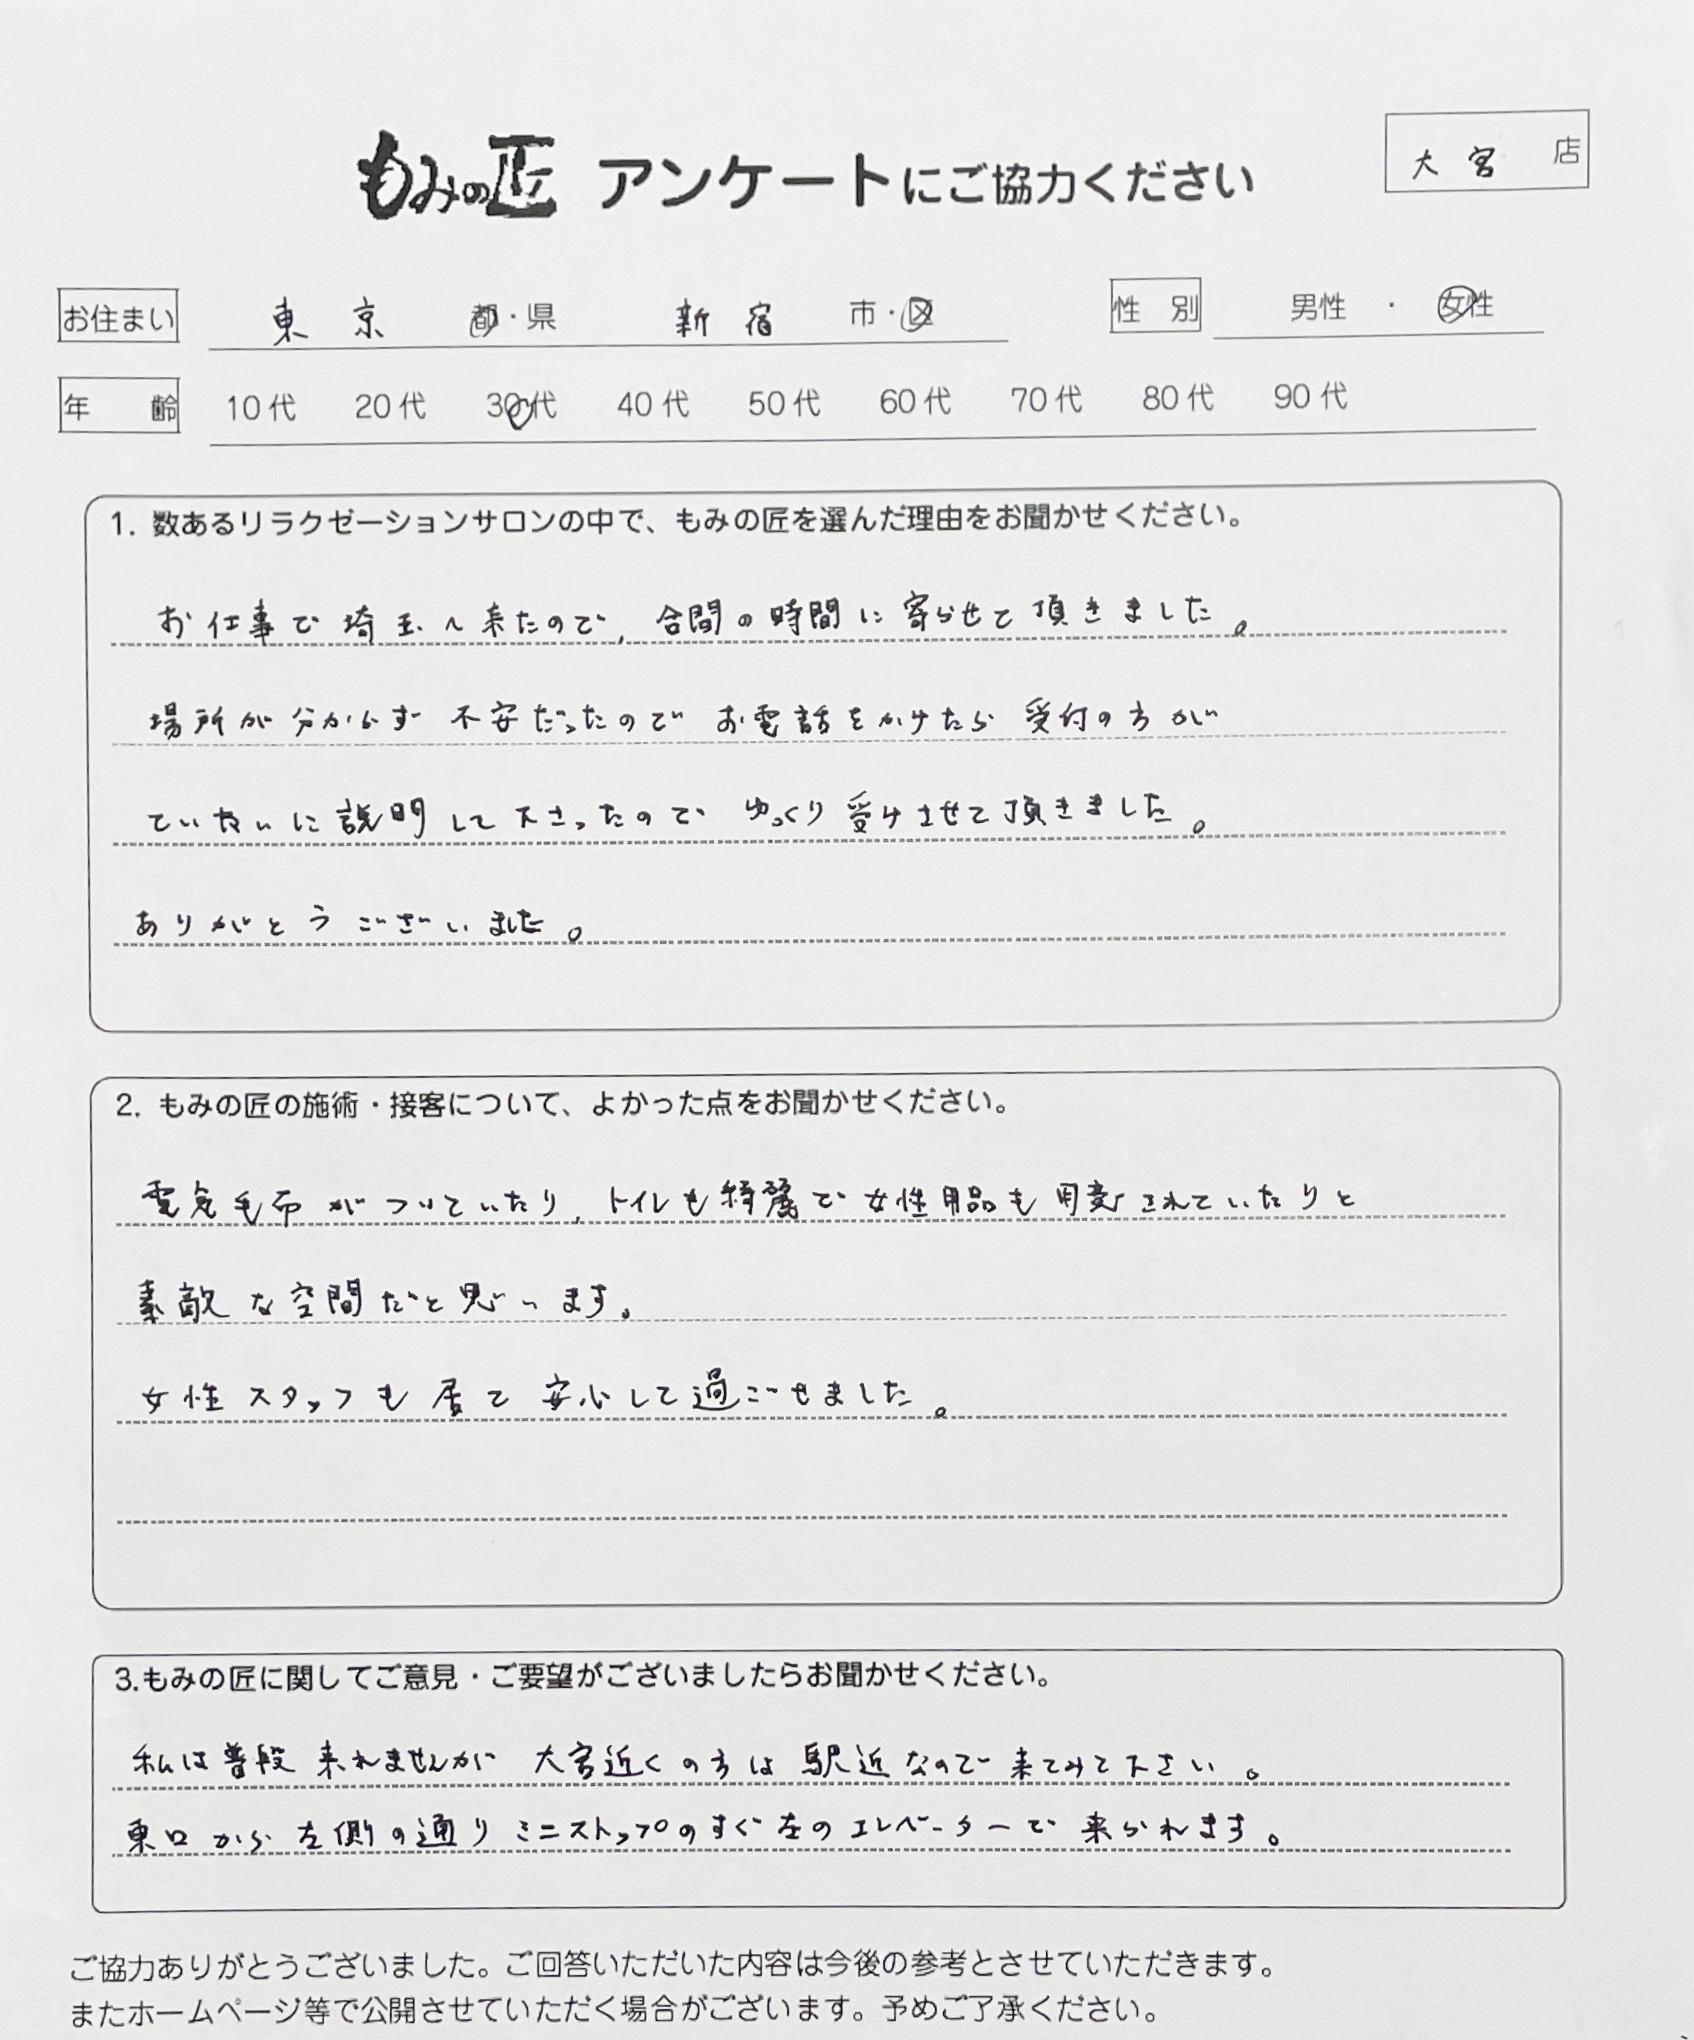 もみの匠 アンケートにご協力ください
大宮 店
お住まい 東京 都・県 新宿 市・区 性別 男性 ・ 女性
年齢 10代 20代 30代 40代 50代 60代 70代 80代 90代
1. 数あるリラクゼーションサロンの中で、もみの匠を選んだ理由をお聞かせください。
お仕事で埼玉へ来たので、合間の時間に寄らせて頂きました。
場所が分からず 不安だったので お電話をかけたら 受付の方が
ていねいに説明して下さったので ゆっくり受けさせて頂きました。
ありがとうございました。
2. もみの匠の施術・接客について、よかった点をお聞かせください。
電気毛布がついていたり、トイレも綺麗で女性用品も用意されていたりと
素敵な空間だと思います。
女性スタッフも居て安心して過ごせました。
3.もみの匠に関してご意見・ご要望がございましたらお聞かせください。
私は普段来れませんが 大宮近くの方は駅近なので来てみて下さい。
東口から左側の通りミニストップのすぐ左のエレベーターで来られます。
ご協力ありがとうございました。ご回答いただいた内容は今後の参考とさせていただきます。
またホームページ等で公開させていただく場合がございます。予めご了承ください。